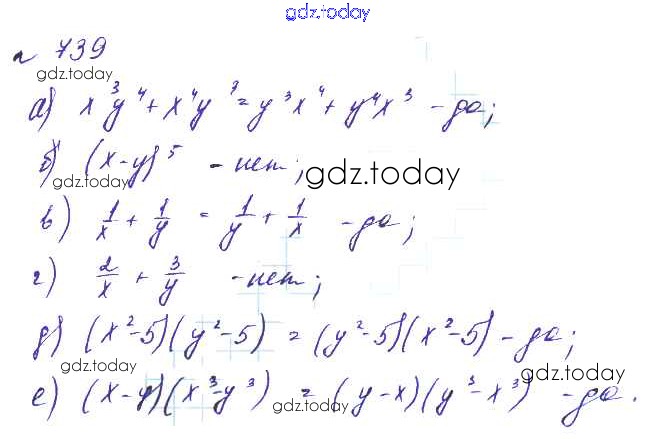 gdz.today
n 739
gdz.today
а) x³y⁴ + x⁴y³ = y³x⁴ + y⁴x³ - да;
б) (x-y)⁵ - нет;
gdz.today
gdz.today
в) 1/x + 1/y = 1/y + 1/x - да;
г) 2/x + 3/y - нет;
д) (x²-5)(y²-5) = (y²-5)(x²-5) - да;
gdz.today
gdz.today
е) (x-y)(x³-y³) = (y-x)(y³-x³) - да.
gdz.today